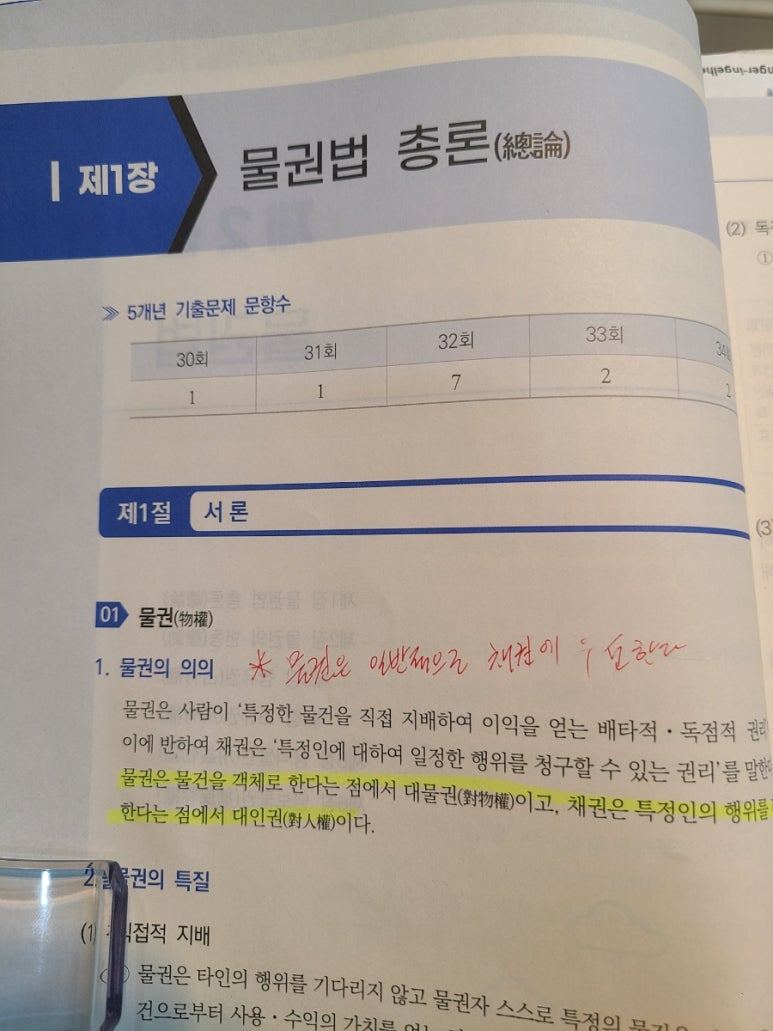 제1장
물권법 총론(總論)
≫ 5개년 기출문제 문항수
30회 31회 32회 33회
1 1 7 2 2
제1절 서론
01 물권(物權)
1. 물권의 의의 * 물권은 일반적으로 채권에 우선한다
물권은 사람이 '특정한 물건을 직접 지배하여 이익을 얻는 배타적·독점적 권리
이에 반하여 채권은 '특정인에 대하여 일정한 행위를 청구할 수 있는 권리'를 말한
물권은 물건을 객체로 한다는 점에서 대물권(對物權)이고, 채권은 특정인의 행위를
한다는 점에서 대인권(對人權)이다.
2. 물권의 특질
(1) 직접적 지배
물권은 타인의 행위를 기다리지 않고 물권자 스스로 특정의 물건으
건으로부터 사용·수익의 가치를 얻는
(2) 독
①
(3)